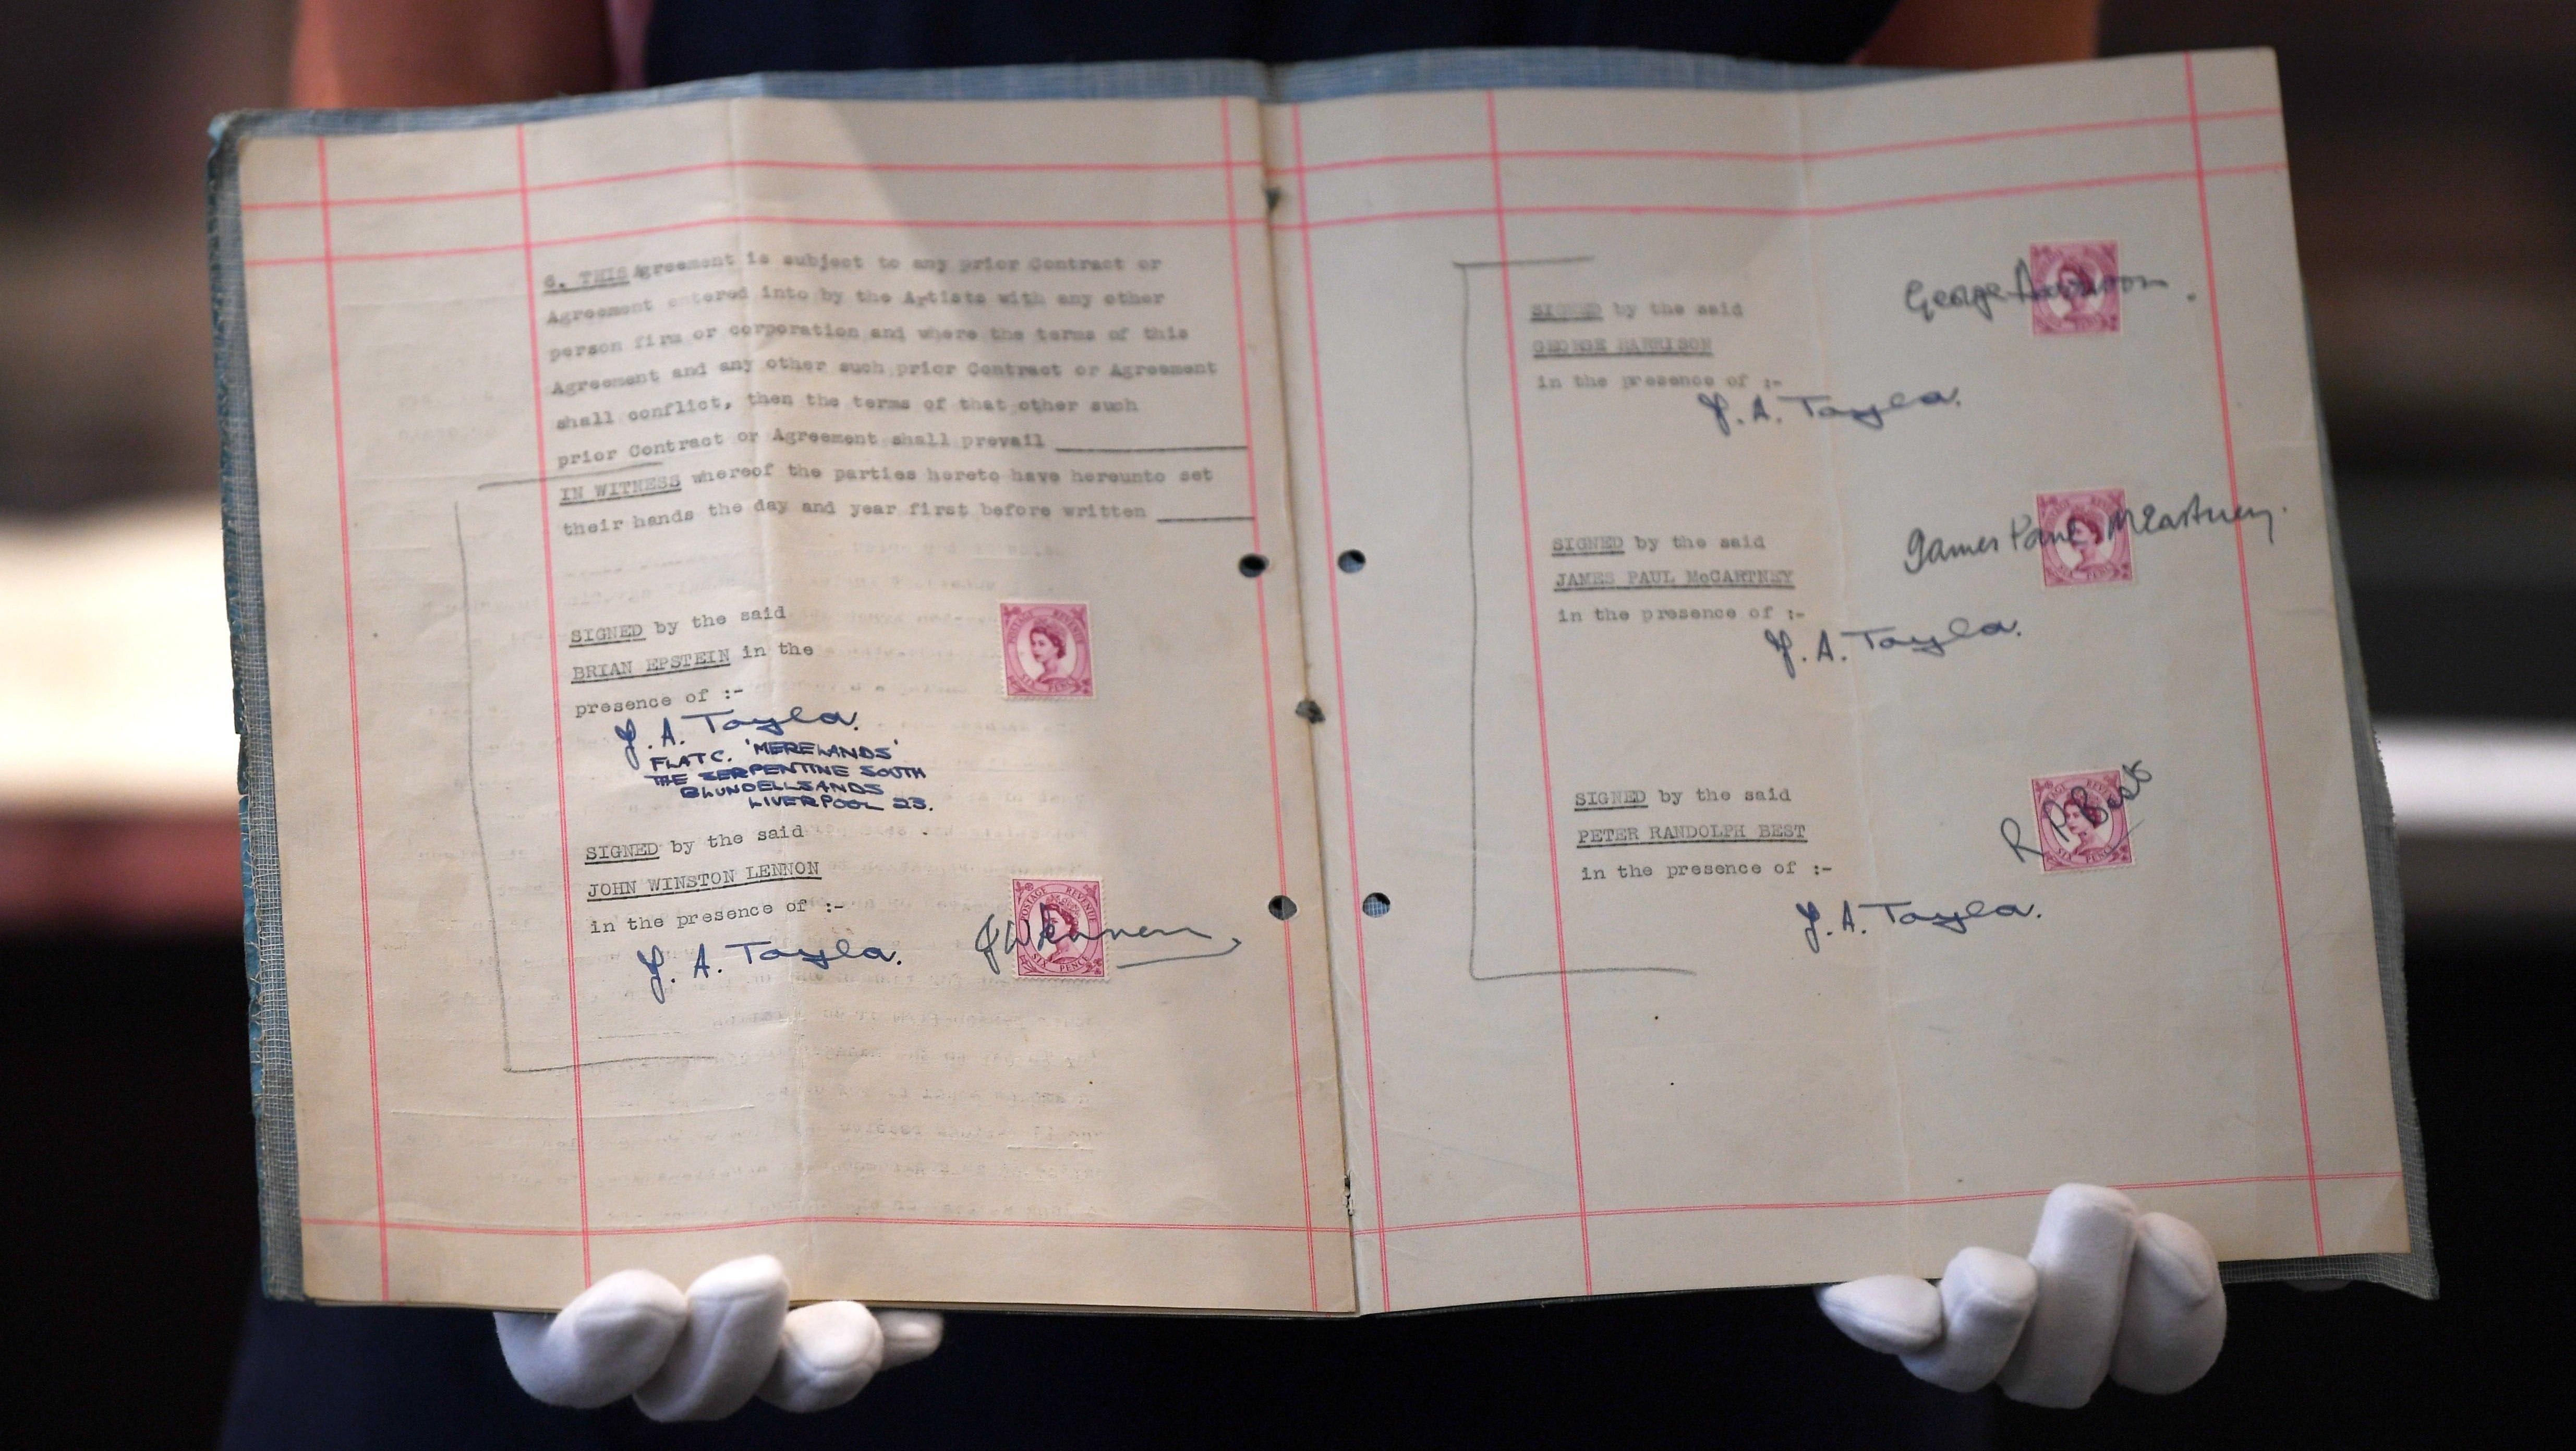 6. THIS Agreement is subject to any prior Contract or
Agreement entered into by the Artists with any other
person firm or corporation and where the terms of this
Agreement and any other such prior Contract or Agreement
shall conflict, then the terms of that other such
prior Contract or Agreement shall prevail
IN WITNESS whereof the parties hereto have hereunto set
their hands the day and year first before written
SIGNED by the said
BRIAN EPSTEIN in the
presence of :-
POSTAGE REVENUE
SIX PENCE
J. A. Tayla.
FLAT C. 'MERELANDS'
THE SERPENTINE SOUTH
BLUNDELLSANDS
LIVERPOOL 23.
SIGNED by the said
JOHN WINSTON LENNON
in the presence of :-
J. A. Tayla.
POSTAGE REVENUE
SIX PENCE
JWLennon
SIGNED by the said
GEORGE HARRISON
in the presence of :-
George Harrison.
J. A. Tayla.
SIGNED by the said
JAMES PAUL McCARTNEY
in the presence of :-
James Paul McCartney.
J. A. Tayla.
SIGNED by the said
PETER RANDOLPH BEST
in the presence of :-
R P Best
SIX PENCE
J. A. Tayla.